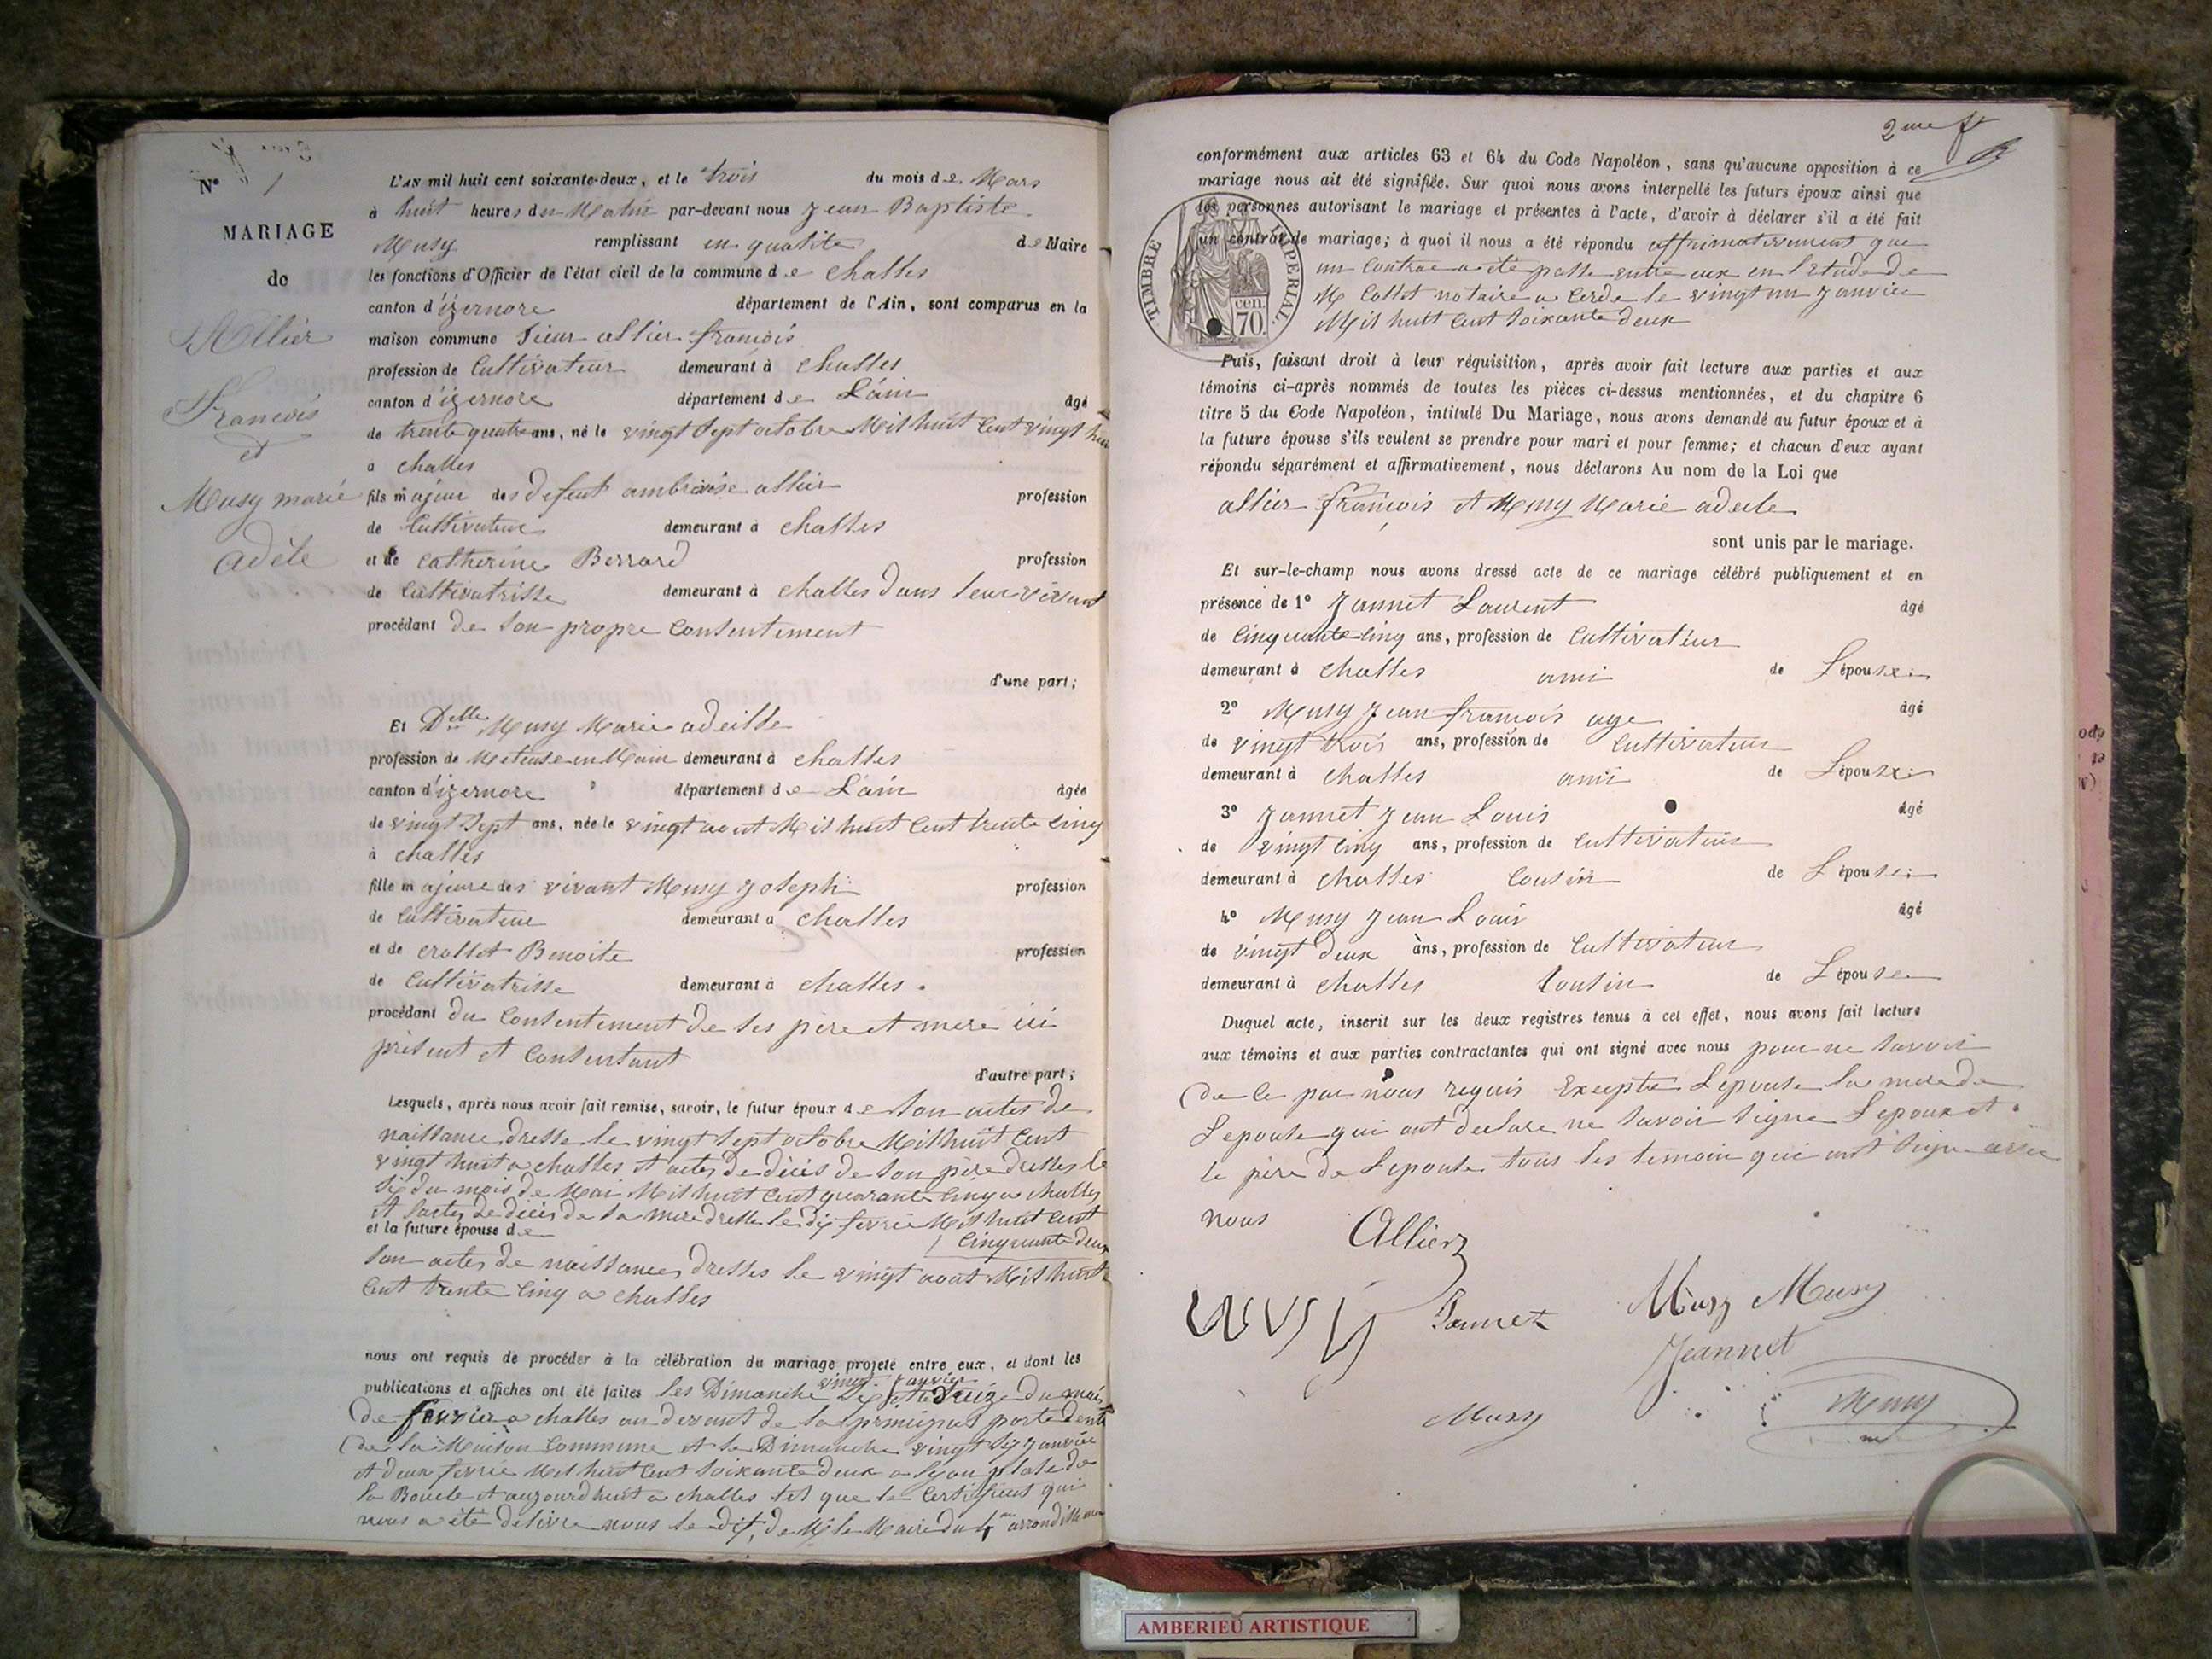 N° 1
MARIAGE
de
Allier
François
et
Musy marie
adèle
L'AN mil huit cent soixante-deux, et le trois du mois de Mars
à huit heures du Matin par-devant nous Jean Baptiste
Musy remplissant en qualité de Maire
les fonctions d'Officier de l'état civil de la commune de challes
canton d'izernore département de l'Ain, sont comparus en la
maison commune Sieur allier françois
profession de Cultivateur demeurant à Challes
canton d'izernore département de L'ain âgé
de trente quatre ans, né le vingt Sept octobre Mil huit Cent vingt huit
à challes
fils majeur des defunt ambroise allier profession
de Cultivateur demeurant à challes
et de Catherine Berrard profession
de Cultivatrisse demeurant à challes dans leur vivant
procédant de son propre Consentement
d'une part;
Et Delle Musy Marie adeille
profession de Meteuse en Main demeurant à challes
canton d'izernore département de L'ain âgée
de vingt Sept ans, née le vingt aout Mil huit Cent trente Cinq
à challes
fille majeure des vivant Musy Joseph profession
de Cultivateur demeurant à challes
et de crollet Benoite profession
de Cultivatrisse demeurant à challes.
procédant du Consentement de ses père et mere ici
présent et Consentant
d'autre part;
Lesquels, après nous avoir fait remise, savoir, le futur époux de son actes de
naissance dresse le vingt Sept octobre Mil huit Cent
vingt huit a challes et actes de décis de son père dresses le
six du mois de Mai Mil huit Cent quarante Cinq a challes
et lactes de décis de sa mere dresse le dix fevrie Mil huit Cent
et la future épouse de Cinquante deux
son actes de naissances dresses le vingt aout Mil huit
Cent trente Cinq a challes
nous ont requis de procéder à la célébration du mariage projeté entre eux, et dont les
publications et affiches ont été faites les Dimanche
vingt Janvier
du mois
de a challes au devant de la principal porte dentr
de la Maison Commune et le Dimanche vingt Six Janvie
et deux fevrie Mil huit Cent Soixante deux a Lyon plase de
la Boucle et aujourdhuit a challes tel que le Certificat qui
nous a été délivre nous le dit, de M le Maire du 4me arrondisseme
2me ft
conformément aux articles 63 et 64 du Code Napoléon, sans qu'aucune opposition à ce
mariage nous ait été signifiée. Sur quoi nous avons interpellé les futurs époux ainsi que
les personnes autorisant le mariage et présentes à l'acte, d'avoir à déclarer s'il a été fait
un contrat de mariage; à quoi il nous a été répondu affirmativement que
un Contrae a été passe entre eux en l'Etude de
M Collet notaire a Cerde le vingt un Janvier
Mil huit Cent Soixante deux
TIMBRE IMPERIAL
70 cen.
Puis, faisant droit à leur réquisition, après avoir fait lecture aux parties et aux
témoins ci-après nommés de toutes les pièces ci-dessus mentionnées, et du chapitre 6
titre 5 du Code Napoléon, intitulé Du Mariage, nous avons demandé au futur époux et à
la future épouse s'ils veulent se prendre pour mari et pour femme; et chacun d'eux ayant
répondu séparément et affirmativement, nous déclarons Au nom de la Loi que
allier françois et Musy Marie adeile
sont unis par le mariage.
Et sur-le-champ nous avons dressé acte de ce mariage célébré publiquement et en
présence de 1° Jannet Laurent âgé
de Cinquante Cinq ans, profession de Cultivateur
demeurant à challes ami de L'épouse
2° Musy Jean françois age âgé
de vingt trois ans, profession de Cultivateur
demeurant à challes ami de L'épouse
3° Jannet Jean Louis âgé
de vingt Cinq ans, profession de Cultivateur
demeurant à challes Cousin de L'épouse
4° Musy Jean Louis âgé
de vingt deux ans, profession de Cultivateur
demeurant à challes Cousin de L'épouse
Duquel acte, inscrit sur les deux registres tenus à cet effet, nous avons fait lecture
aux témoins et aux parties contractantes qui ont signé avec nous pour ne savoir
de Ce par nous requis Excepte L'epouse la mere de
L'epouse qui ont declare ne Savoir Signe L'epoux et
le père de L'epouse tous les temoin qui ont Signe avec
nous Allier
musy Jannet Musy Musy
Jeannet
Musy Musy
AMBERIEU ARTISTIQUE